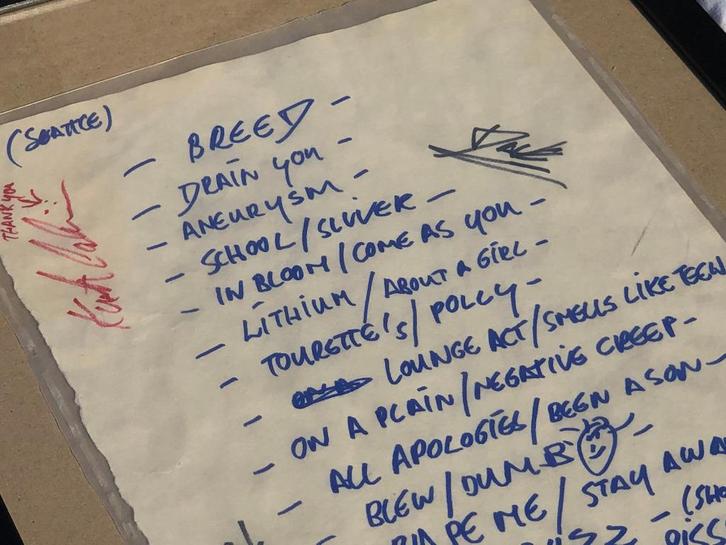 (SEATTLE)
- BREED -
- DRAIN YOU -
- ANEURYSM -
- SCHOOL/SLIVER -
- IN BLOOM/COME AS YOU -
- LITHIUM/ABOUT A GIRL -
- TOURETTE'S/POLLY -
- LOUNGE ACT/SMELLS LIKE TEEN
- ON A PLAIN/NEGATIVE CREEP -
- ALL APOLOGIES/BEEN A SON -
BLEW/DUMB
RAPE ME/STAY AWA
THANK YOU